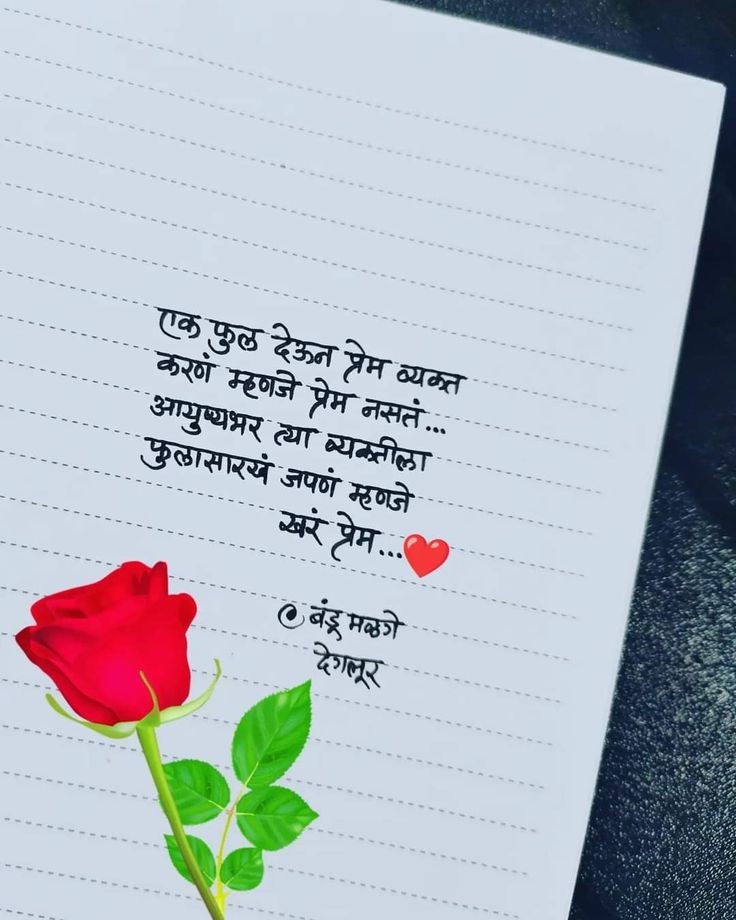 एक फुल देऊन प्रेम व्यक्त
करणं म्हणजे प्रेम नसतं...
आयुष्यभर त्या व्यक्तीला
फुलासारखं जपणं म्हणजे
खरं प्रेम...❤️
@ बंडू मळगे
देगलूर